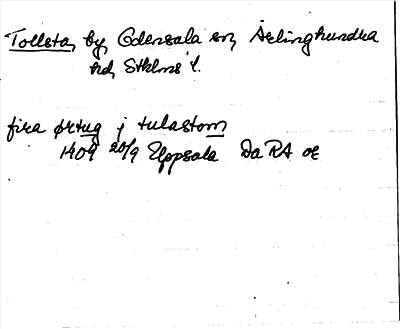 Tollsta, by, Odensala sn, Ärlinghundra
hd, Stklms l.
fira ørtug j tulastom
1409 20/9 Uppsala DaRA or